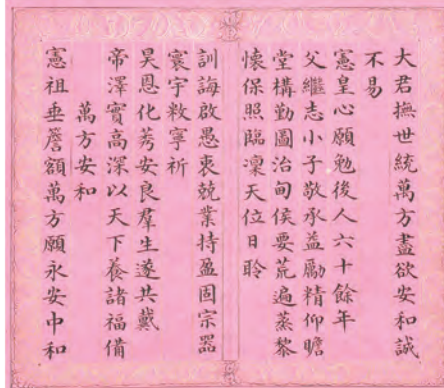 大君撫世統萬方盡欲安和誠
不易
憲皇心願勉後人六十餘年
父繼志小子敬承益勵精仰瞻
堂構勤圖治甸侯要荒遍蒸黎
懷保照臨凜天位日聆
訓誨啟愚衷兢業持盈固宗器
寰宇敉寧祈
昊恩化莠安良羣生遂共戴
帝澤實高深以天下養諸福備
萬方安和
憲祖垂簷額萬方願永安中和